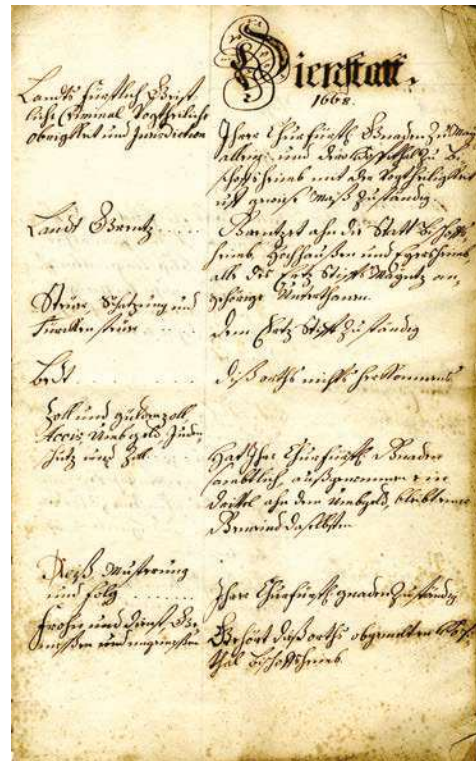 Dierstatt.
1668.
Landts Fürstlich Geist
liche Criminal Vogtheiliche
obrigkeit und Jurisdiction
Ihrer Churfürstl. Gnaden Zu
allein und
schoffsheimb mit der Vogtheiligkeit
uff gewiese Maß Zuständig
Landt Grentz
Grentzet ahn die Statt Bischoffs
heimb, Hochhaußen und
alls des Ertz Stiffts Mayntz an,
gehörige Unterthanen.
Steuer, Schatzung und
Türcken steuer
dem Ertz Stifft Zuständig
Bedt
diß orths nichts herkommens
Zoll und güldenzoll,
Accis, Umbgeld, Juden
schutz und Zoll
Hat Ihre Churfürstl. Gnaden
sambtlich, außgenommen ein
drittel ahn dem umbgeld, bleibt einer
Gemeind daselbsten
Reiß Musterung
und folg
Ihrer Churfürstl. gnaden Zuständig
Frohn und dienst Ge
meßen und ungemeßen
Gehört diß orths obgemelten
thal Bischoffsheimb.